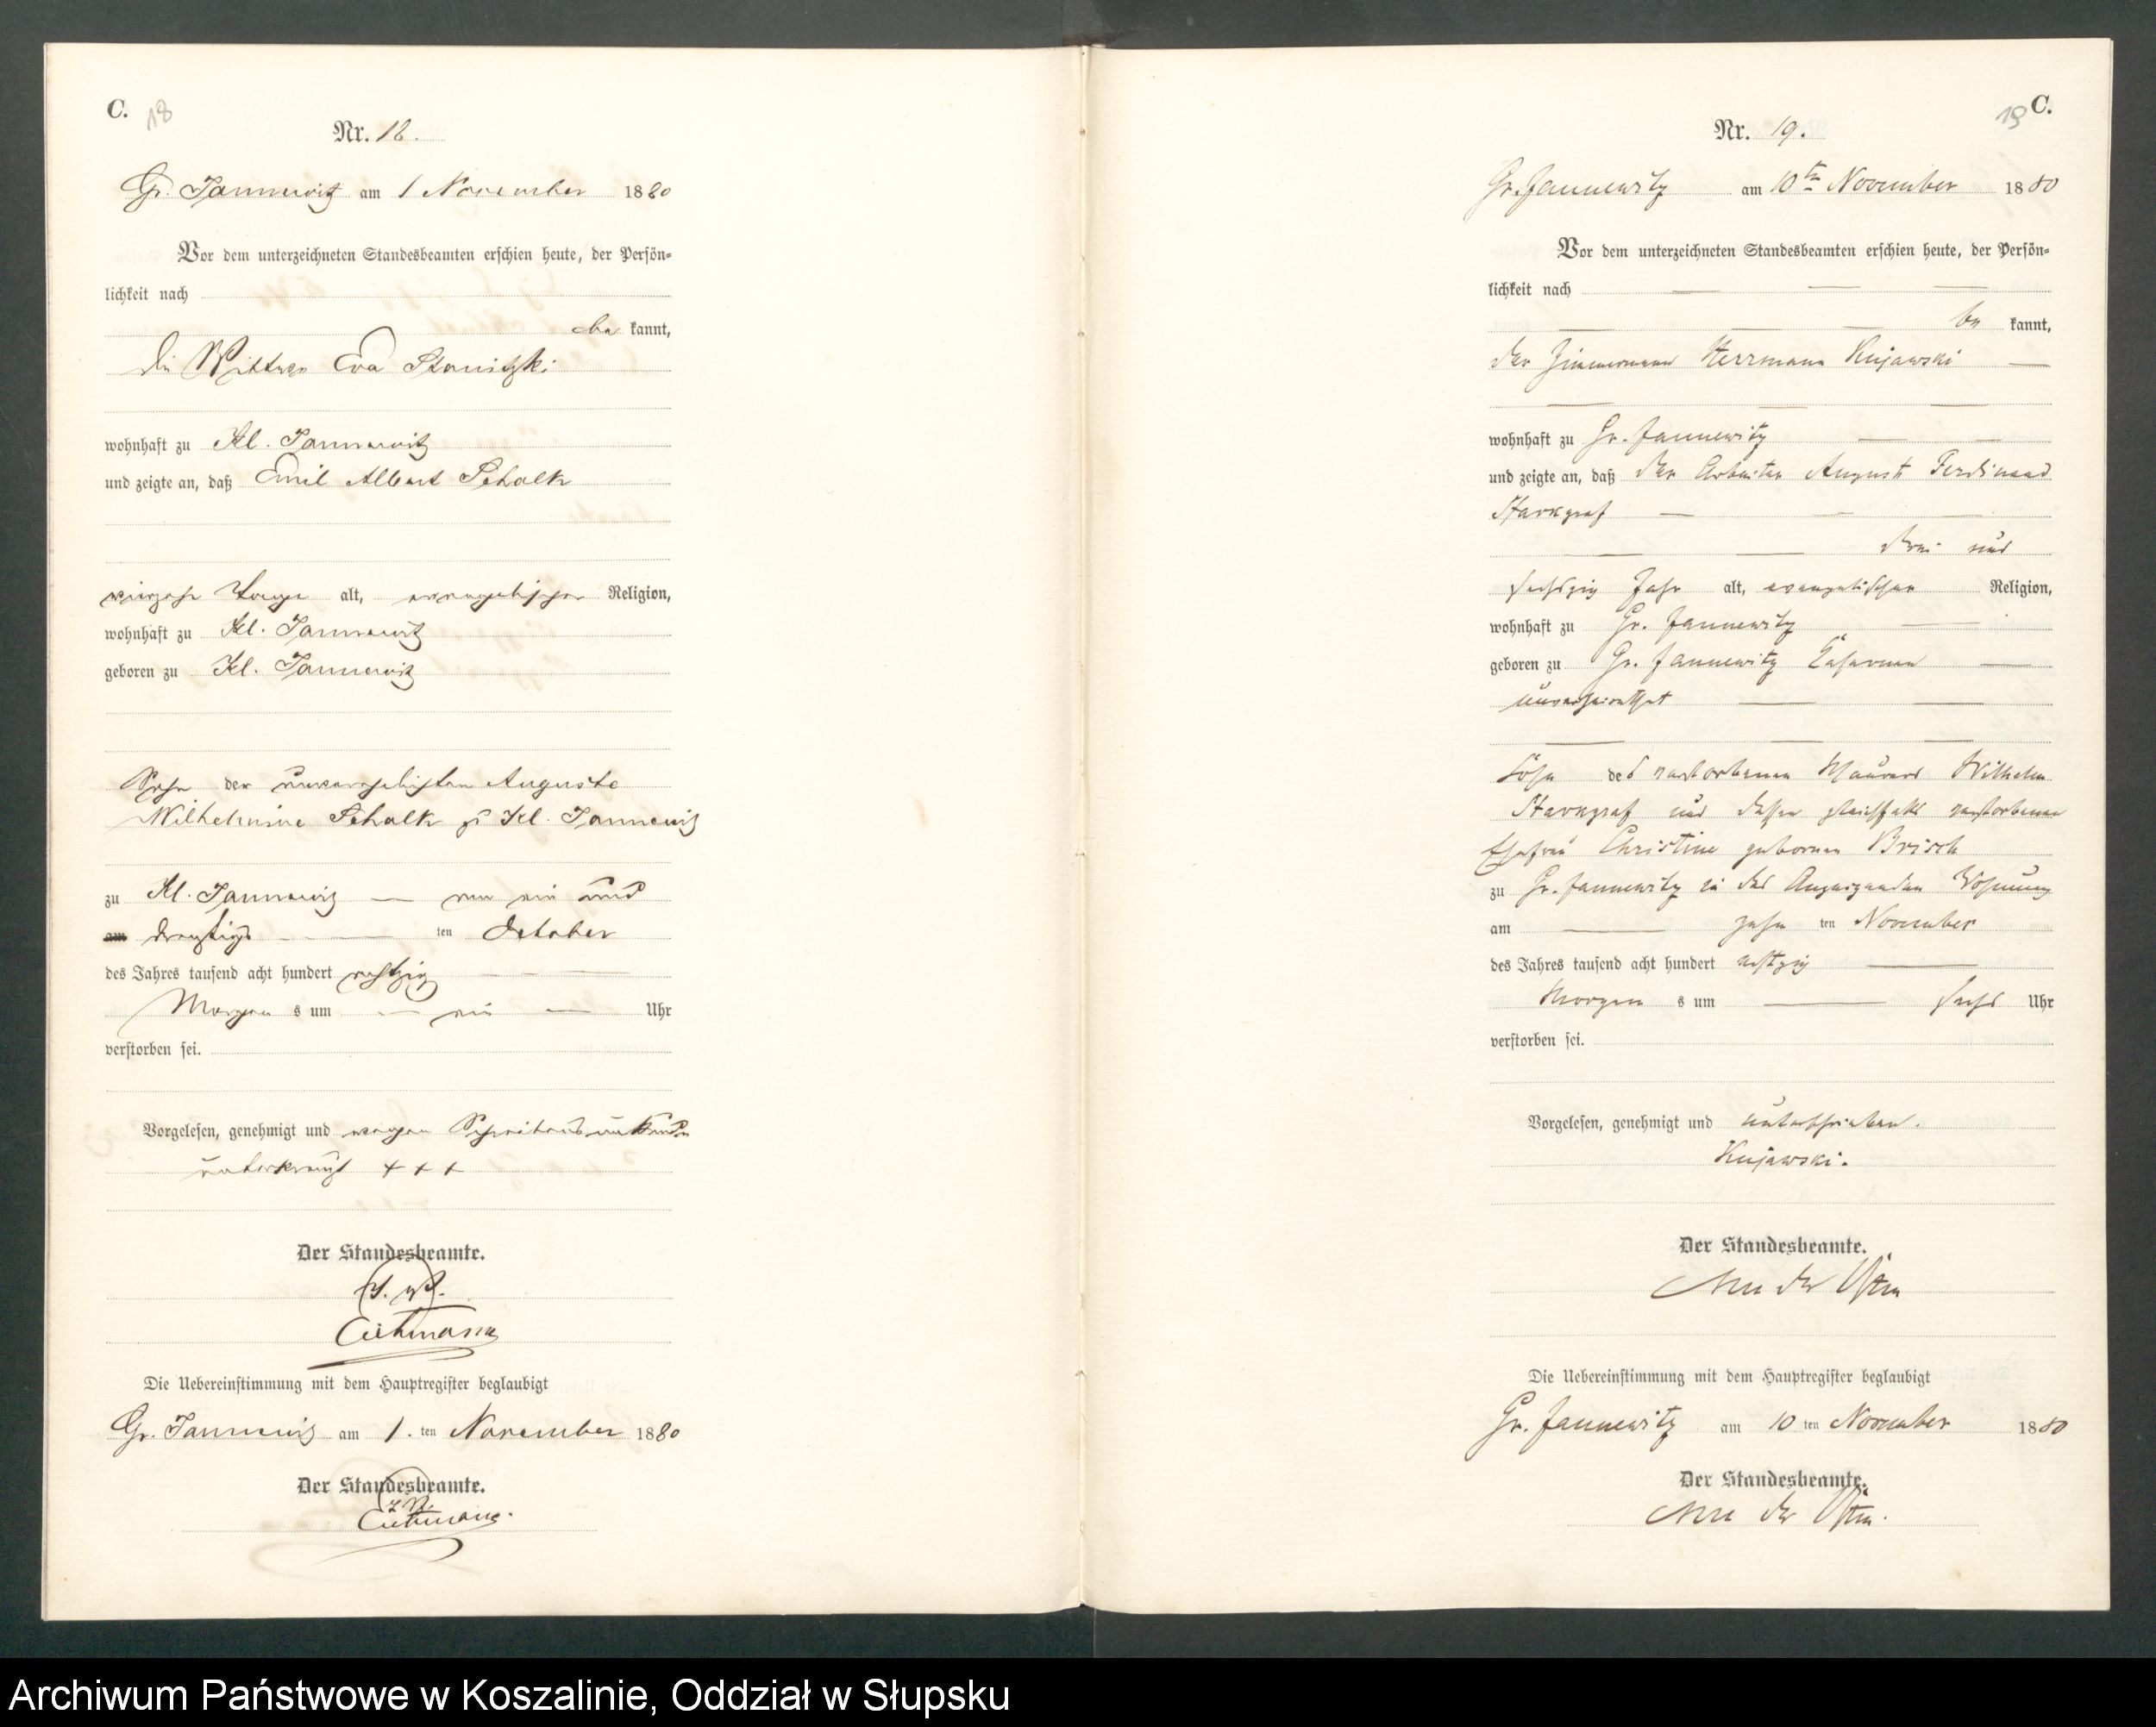 C. 18
Nr. 18.
Gr. Jannewitz am 1 November 1880
Vor dem unterzeichneten Standesbeamten erschien heute, der Persön-
lichkeit nach
be kannt,
die Wittwe Eva Stanitzki
wohnhaft zu Kl. Jannewitz
und zeigte an, daß Emil Albert Schalk
vierzehn Tage alt, evangelischer Religion,
wohnhaft zu Kl. Jannewitz
geboren zu Kl. Jannewitz
Sohn der unverehelichten Auguste
Wilhelmine Schalk zu Kl. Jannewitz
zu Kl. Jannewitz — am ein und
am dreißigs — ten October
des Jahres tausend acht hundert achtzig —
Morgen s um — ein — Uhr
verstorben sei.
Vorgelesen, genehmigt und wegen Schreibensunkunde
unterkreuzt + + +
Der Standesbeamte.
Die Uebereinstimmung mit dem Hauptregister beglaubigt
Gr. Jannewitz am 1. ten November 1880
Der Standesbeamte.
19 C.
Nr. 19.
Gr. Jannewitz am 10ten November 1880
Vor dem unterzeichneten Standesbeamten erschien heute, der Persön-
lichkeit nach — — —
— — — be kannt,
der Zimmermann Herrmann Kujawski —
— — —
wohnhaft zu Gr. Jannewitz — —
und zeigte an, daß der Arbeiter August Ferdinand
Starkgraf — — —
— — drei und
sechszig Jahr alt, evangelischer Religion,
wohnhaft zu Gr. Jannewitz —
geboren zu Gr. Jannewitz —
unverheirathet — —
— — —
Sohn des verstorbenen Maurers Wilhelm
Starkgraf und dessen gleichfalls verstorbenen
Ehefrau Christine geborenen Brisch
zu Gr. Jannewitz in des Anzeigenden Wohnung
am — zehn ten November
des Jahres tausend acht hundert achtzig —
Morgen s um — sechs Uhr
verstorben sei.
Vorgelesen, genehmigt und unterschrieben.
Kujawski.
Der Standesbeamte.
von der Osten
Die Uebereinstimmung mit dem Hauptregister beglaubigt
Gr. Jannewitz am 10 ten November 1880
Der Standesbeamte.
von der Osten.
Archiwum Państwowe w Koszalinie, Oddział w Słupsku